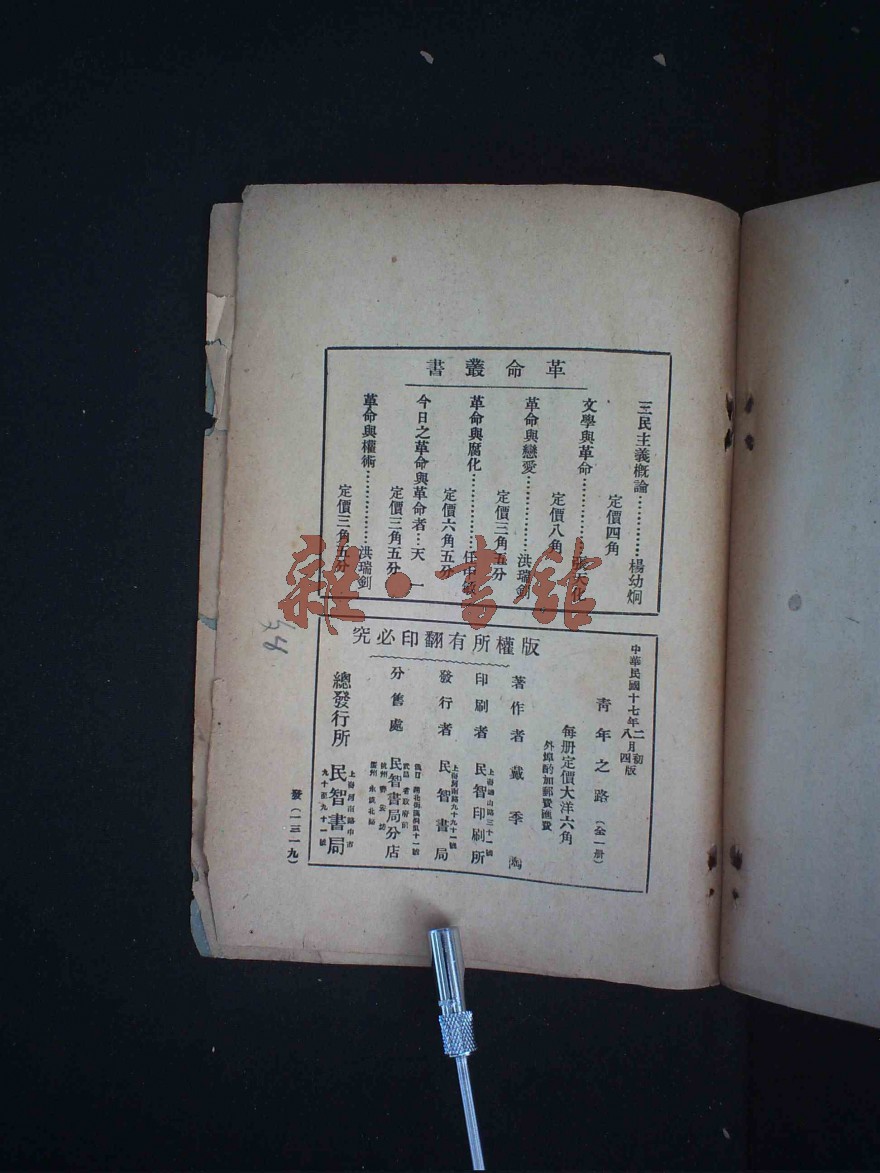 革命叢書
三民主義概論……………楊幼炯
定價四角
文學與革命……………張天化
定價八角
革命與戀愛……………洪瑞釗
定價三角五分
革命與腐化……………任中敏
定價六角五分
今日之革命與革命者…天一
定價三角五分
革命與權術……………洪瑞釗
定價三角五分
版權所有翻印必究
中華民國十七年二月初版
八月四版
青年之路(全一册)
每册定價大洋六角
外埠酌加郵費匯費
著作者 戴季陶
印刷者 民智印刷所
發行者 上海河南路九十九十一號 民智書局
分售處 民智書局分店
總發行所 民智書局
發(一三一九)
雜·書館